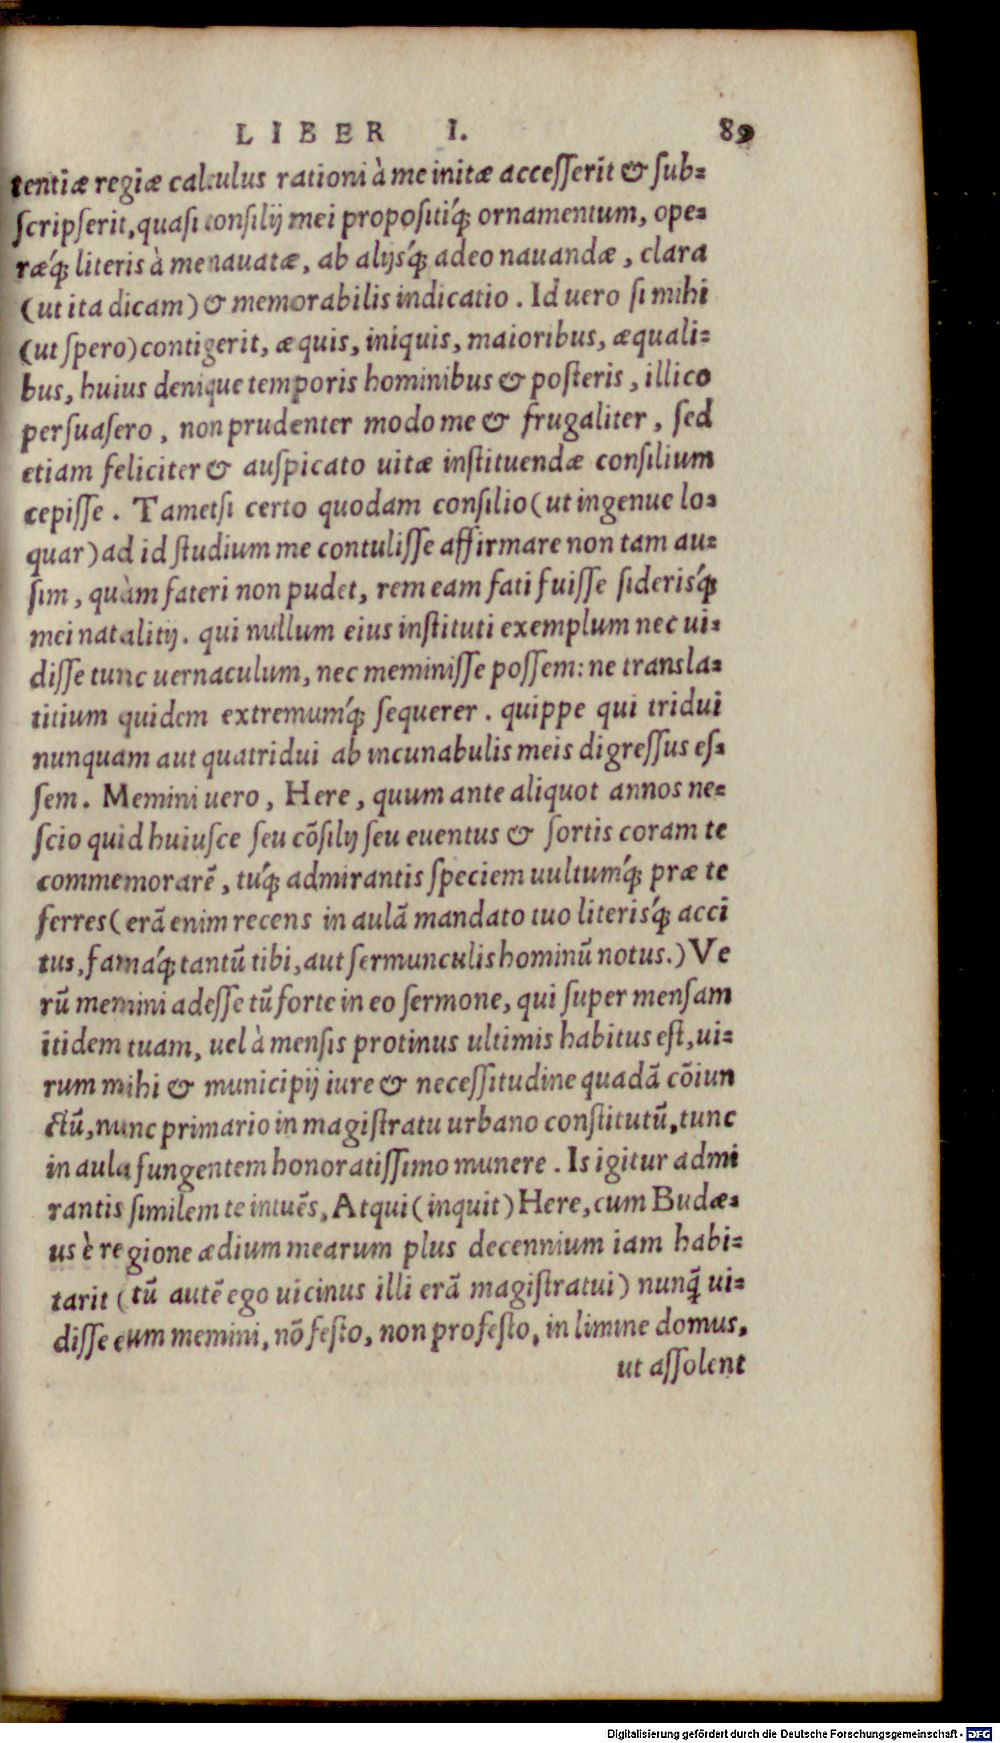 LIBER I. 89
tentiæ regiæ calculus rationi à me initæ accesserit & sub-
scripserit, quasi consilij mei propositiq́; ornamentum, ope-
ræq́; literis à me nauatæ, ab alijsq́; adeo nauandæ, clara
(ut ita dicam) & memorabilis indicatio. Id uero si mihi
(ut spero) contigerit, æquis, iniquis, maioribus, æquali-
bus, huius denique temporis hominibus & posteris, illico
persuasero, non prudenter modo me & frugaliter, sed
etiam feliciter & auspicato uitæ instituendæ consilium
cepisse. Tametsi certo quodam consilio (ut ingenue lo-
quar) ad id studium me contulisse affirmare non tam au-
sim, quàm fateri non pudet, rem eam fati fuisse siderisq́;
mei natalitij. qui nullum eius instituti exemplum nec ui-
disse tunc uernaculum, nec meminisse possem: ne transla-
titium quidem extremumq́; sequerer. quippe qui tridui
nunquam aut quatridui ab incunabulis meis digressus es-
sem. Memini uero, Here, quum ante aliquot annos ne-
scio quid huiusce seu cõsilij seu euentus & sortis coram te
commemorarẽ, tuq́; admirantis speciem uultumq́; præ te
ferres (erã enim recens in aulã mandato tuo literisq́; acci
tus, famaq́; tantũ tibi, aut sermunculis hominũ notus.) Ve
rũ memini adesse tũ forte in eo sermone, qui super mensam
itidem tuam, uel à mensis protinus ultimis habitus est, ui-
rum mihi & municipij iure & necessitudine quadã cõiun
ctũ, nunc primario in magistratu urbano constitutũ, tunc
in aula fungentem honoratissimo munere. Is igitur admi
rantis similem te intuẽs, Atqui (inquit) Here, cum Budæ-
us è regione ædium mearum plus decennium iam habi-
tarit (tũ autẽ ego uicinus illi erã magistratui) nunq̃ ui-
disse eum memini, nõ festo, non profesto, in limine domus,
ut assolent
Digitalisierung gefördert durch die Deutsche Forschungsgemeinschaft - DFG